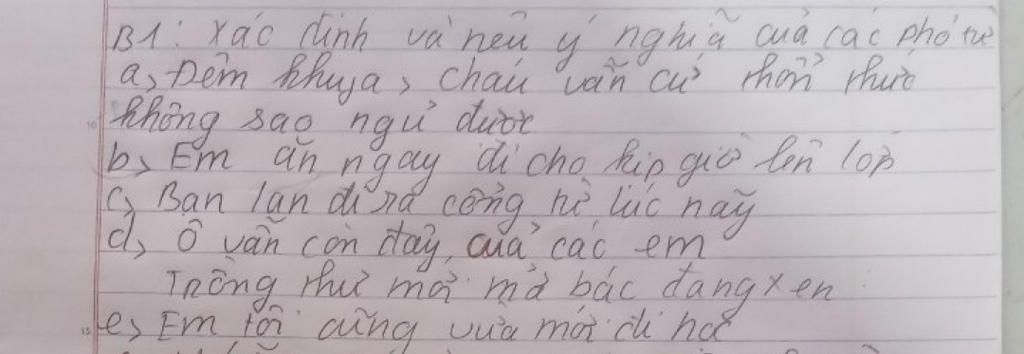 B1: Xác định và nêu ý nghĩa của các phó từ
a, Đêm khuya, cháu vẫn cứ thổn thức
không sao ngủ được
b, Em ăn ngay đi cho kịp giờ lên lớp
c, Bạn lan đi ra cổng từ lúc nãy
d, Ô vẫn còn đây, của các em
Trồng thư mới mở bác đang xen
e, Em tôi cũng vừa mới đi học